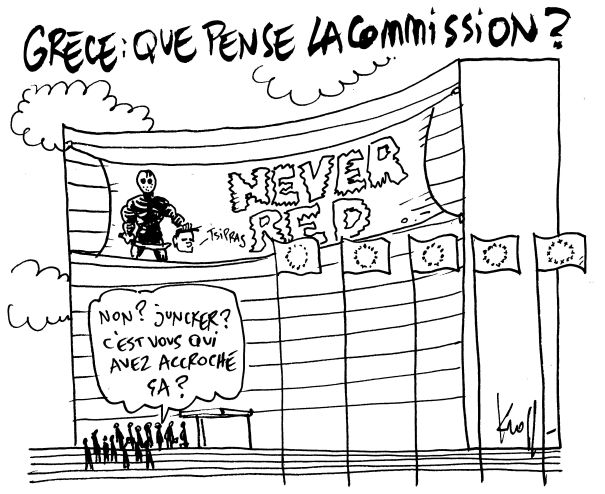 GRÈCE: QUE PENSE LA COMMISSION?
NEVER
RED
TSIPRAS
NON? JUNCKER?
C'EST VOUS QUI
AVEZ ACCROCHÉ
ÇA?
Kroll